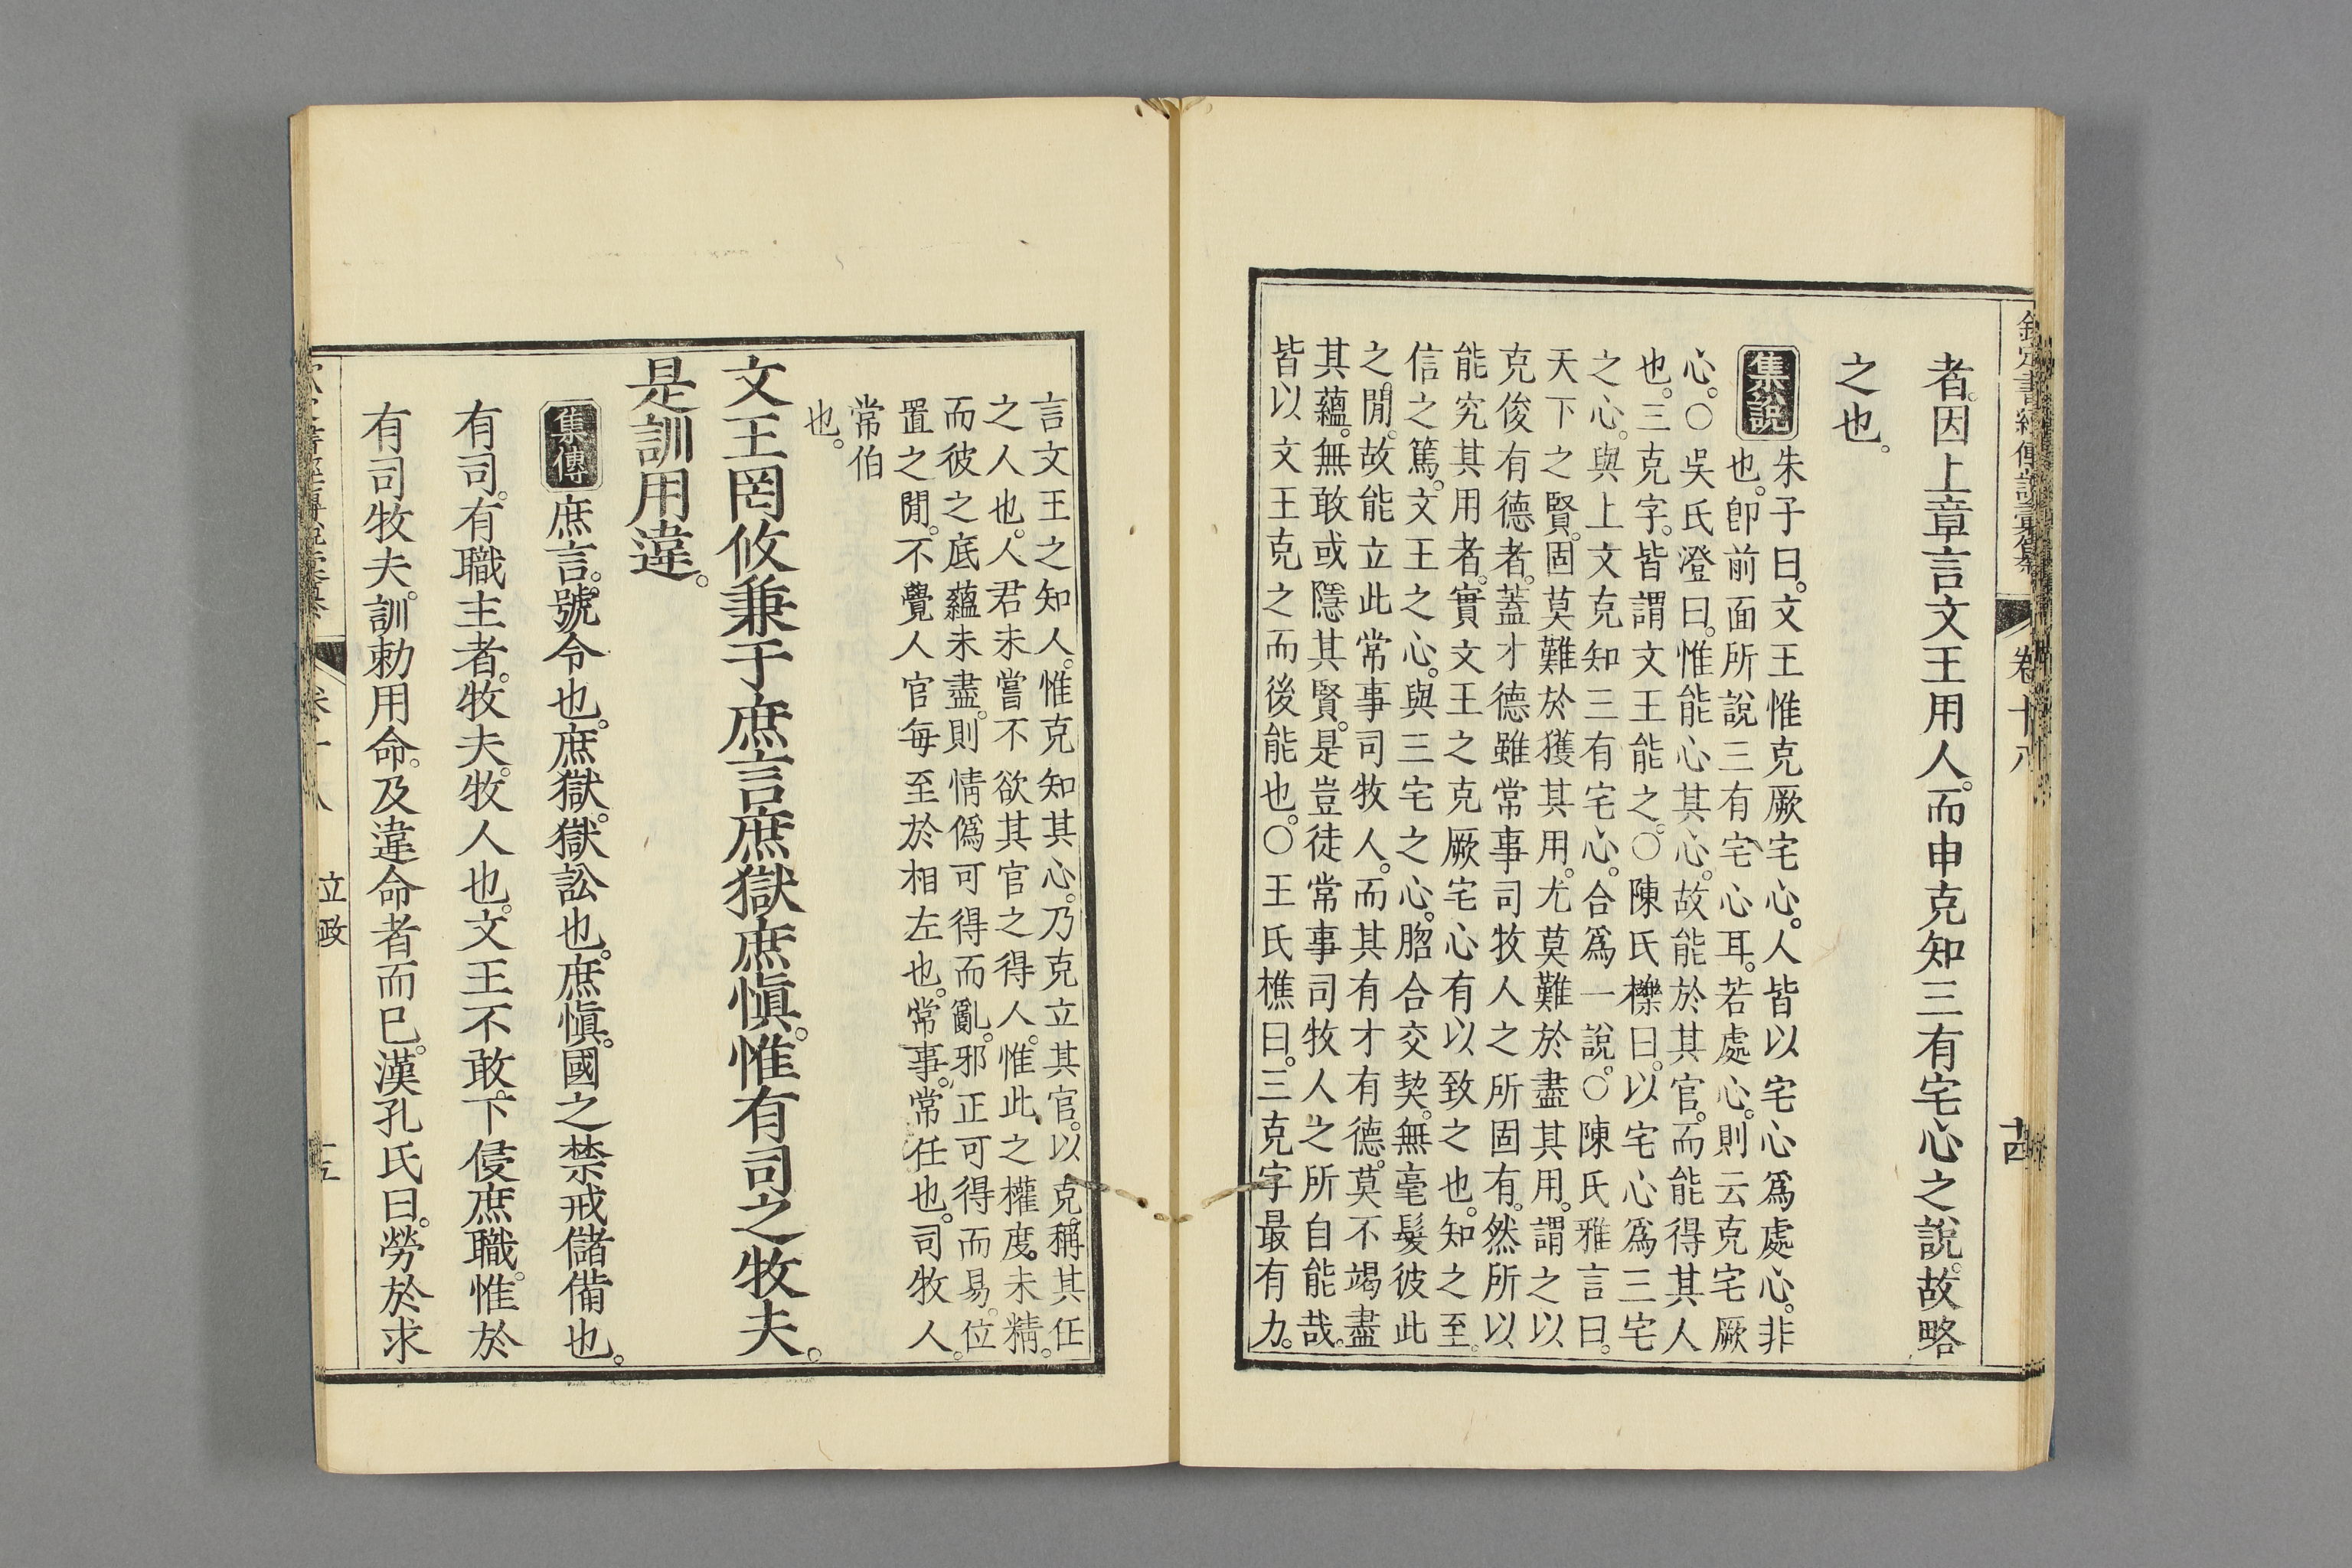 欽定書經傳說彙纂　卷十八　十四
者。因上章言文王用人。而申克知三有宅心之說。故略
之也。
集說
朱子曰。文王惟克厥宅心。人皆以宅心爲處心。非
也。卽前面所說三有宅心耳。若處心。則云克宅厥
心。○吳氏澄曰。惟能心其心。故能於其官。而能得其人
也。三克字。皆謂文王能之。○陳氏櫟曰。以宅心爲三宅
之心。與上文克知三有宅心。合爲一說。○陳氏雅言曰。
天下之賢。固莫難於獲其用。尤莫難於盡其用。謂之以
克俊有德者。蓋才德雖常事司牧人之所固有。然所以
能究其用者。實文王之克厥宅心有以致之也。知之至。
信之篤。文王之心。與三宅之心。脗合交契。無毫髮彼此
之閒。故能立此常事司牧人。而其有才有德。莫不竭盡
其蘊。無敢或隱其賢。是豈徒常事司牧人之所自能哉。
皆以文王克之而後能也。○王氏樵曰。三克字最有力。
言文王之知人。惟克知其心。乃克立其官。以克稱其任
之人也。人君未嘗不欲其官之得人。惟此之權度未精。
而彼之底蘊未盡。則情僞可得而亂。邪正可得而易。位
置之閒。不覺人官每至於相左也。常事。常任也。司牧人。
常伯
也。
文王罔攸兼于庶言庶獄庶愼。惟有司之牧夫。
是訓用違。
集傳
庶言。號令也。庶獄。獄訟也。庶愼。國之禁戒儲備也。
有司。有職主者。牧夫。牧人也。文王不敢下侵庶職。惟於
有司牧夫。訓勅用命。及違命者而已。漢孔氏曰。勞於求
立政